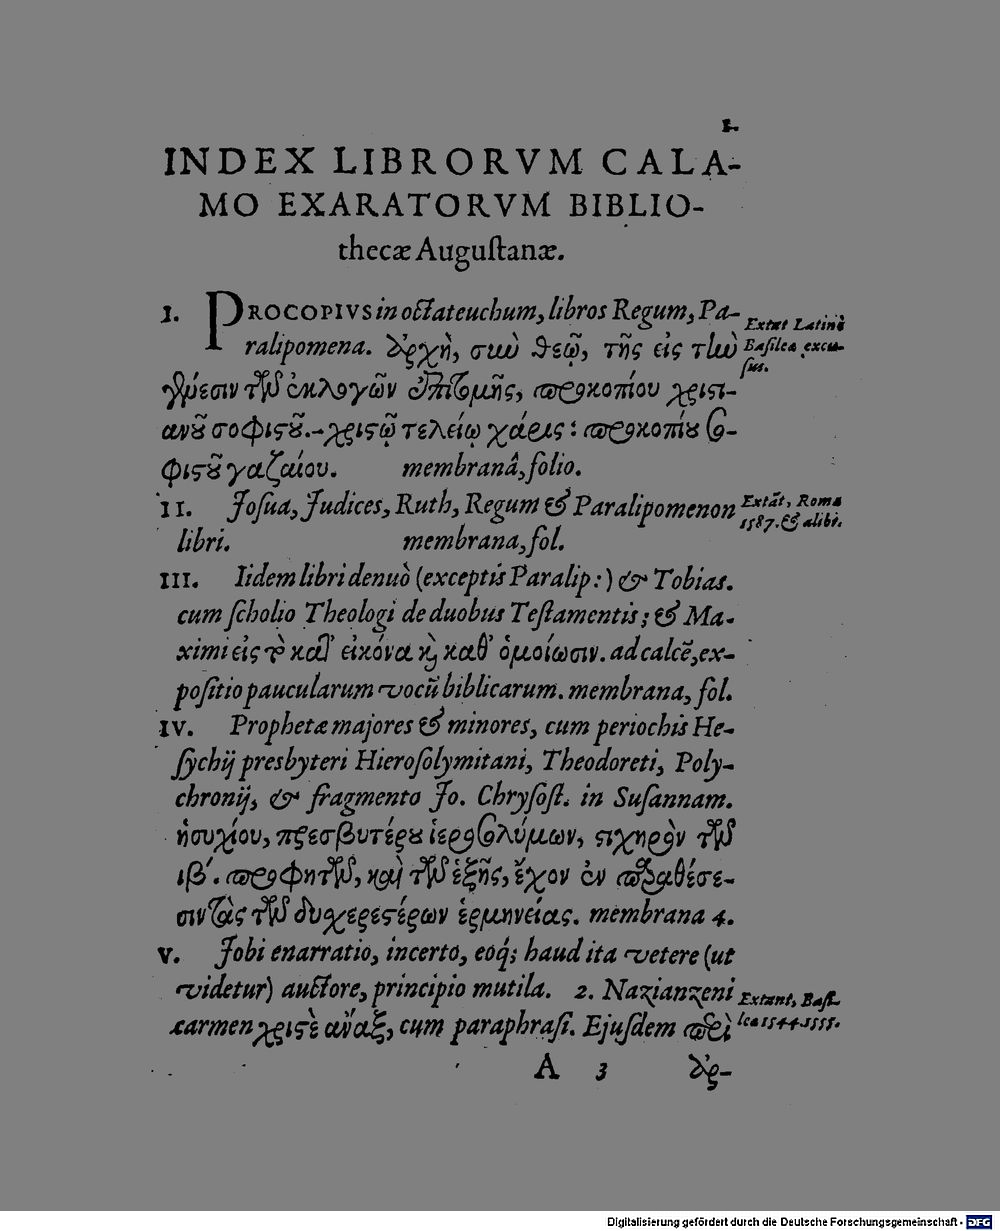 1.
INDEX LIBRORVM CALA-
MO EXARATORVM BIBLIO-
thecæ Augustanæ.
I. PROCOPIVS in octateuchum, libros Regum, Pa-
ralipomena. ἀρχὴ, σὺν θεῷ, τῆς εἰς τὴν
γένεσιν τῶν ἐκλογῶν ἐπιτομῆς, προκοπίου χριστι-
ανοῦ σοφιστοῦ.- χριστῷ τελείῳ χάρις: προκοπίου σο-
φιστοῦ γαζαίου. membranâ, folio.
Extat Latinè
Basileæ excu-
sus.
II. Josua, Judices, Ruth, Regum & Paralipomenon
libri. membrana, fol.
Extāt, Roma
1587. & alibi.
III. Iidem libri denuò (exceptis Paralip:) & Tobias.
cum scholio Theologi de duobus Testamentis; & Ma-
ximi εἰς τὸ κατ' εἰκόνα καὶ καθ' ὁμοίωσιν. ad calcē, ex-
positio paucularum vocū biblicarum. membrana, fol.
IV. Prophetæ majores & minores, cum periochis He-
sychij presbyteri Hierosolymitani, Theodoreti, Poly-
chronij, & fragmento Jo. Chrysost. in Susannam.
ἡσυχίου, πρεσβυτέρου ἱεροσολύμων, στιχηρὸν τῶν
ιβ'. προφητῶν, καὶ τῶν ἑξῆς, ἔχον ἐν παραθέσε-
σιν τὰς τῶν δυχερεστέρων ἑρμηνείας. membrana 4.
V. Jobi enarratio, incerto, eoq; haud ita vetere (ut
videtur) auctore, principio mutila. 2. Nazianzeni
carmen χριστὲ ἄναξ, cum paraphrasi. Ejusdem περὶ
Extant, Basi-
lea 1544. 1555.
A 3 ἀρ-
Digitalisierung gefördert durch die Deutsche Forschungsgemeinschaft - DFG